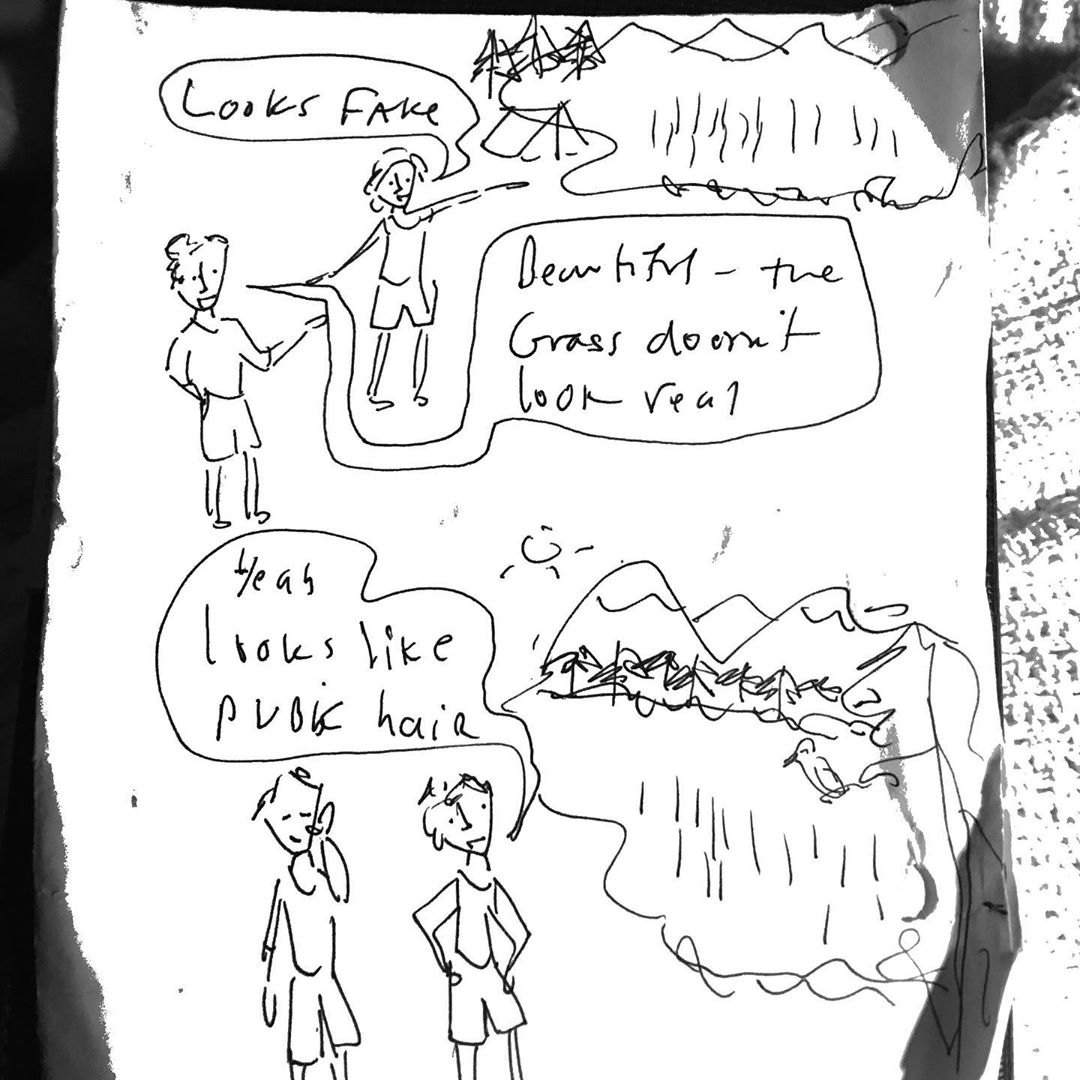 Looks FAKe
Beautiful - the
Grass doesn't
look real
Yeah
looks like
PUBIK hair